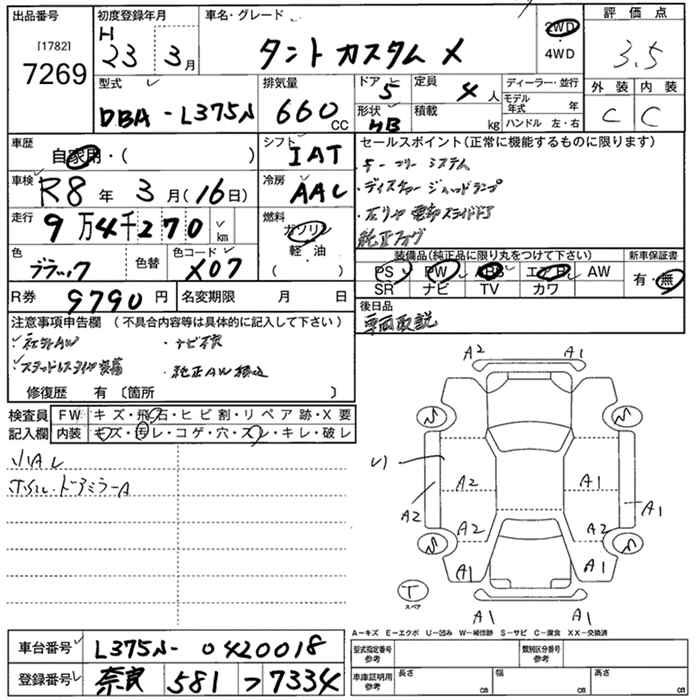 出品番号 初度登録年月 車名・グレード 評価点
[1782] 7269 H 23 3月 タント カスタム X 2WD・4WD 3.5
型式 排気量 ドア 定員 ディーラー・並行 外装 内装
DBA-L375N 660CC 5 4人 モデル年式 年 C C
形状 HB 積載 kg ハンドル 左・右
車歴 自家用・( ) シフト IAT セールスポイント(正常に機能するものに限ります)
キーフリーシステム
車検 R8年 3月(16日) 冷房 AAC ・ディスチャージヘッドランプ
走行 9万4千270km 燃料 ガソリン 軽・油 ( ) ・左リヤ電動スライドドア
純正フォグ
色 ブラック 色替 色コード X07 装備品(純正品に限り丸をつけて下さい) 新車保証書
PS PW ABS エアB AW 有・無
SR ナビ TV カワ
R券 9790円 名変期限 月 日 後日品
車両取説
注意事項申告欄 (不具合内容等は具体的に記入して下さい)
社外AW ・ナビ
・スタッドレスタイヤ装着 ・純正AW積込
修復歴 有 〔箇所 〕
検査員 FW キズ・飛石・ヒビ割・リペア跡・X要
記入欄 内装 キズ・汚レ・コゲ・穴・スレ・キレ・破レ
小AU
ホイル・ドアミラーA
A2 A1
A2 A1
A2 A1
A2 A2
A1 A1
T スペア
A1 A1
A-キズ E-エクボ U-凹み W-補修跡 S-サビ C-腐食 XX-交換済
車台番号 L375N-0420018 型式指定番号 参考 類別区分番号 参考
登録番号 奈良 581 つ 7334 車庫証明用 参考 長さ cm 幅 cm 高さ cm